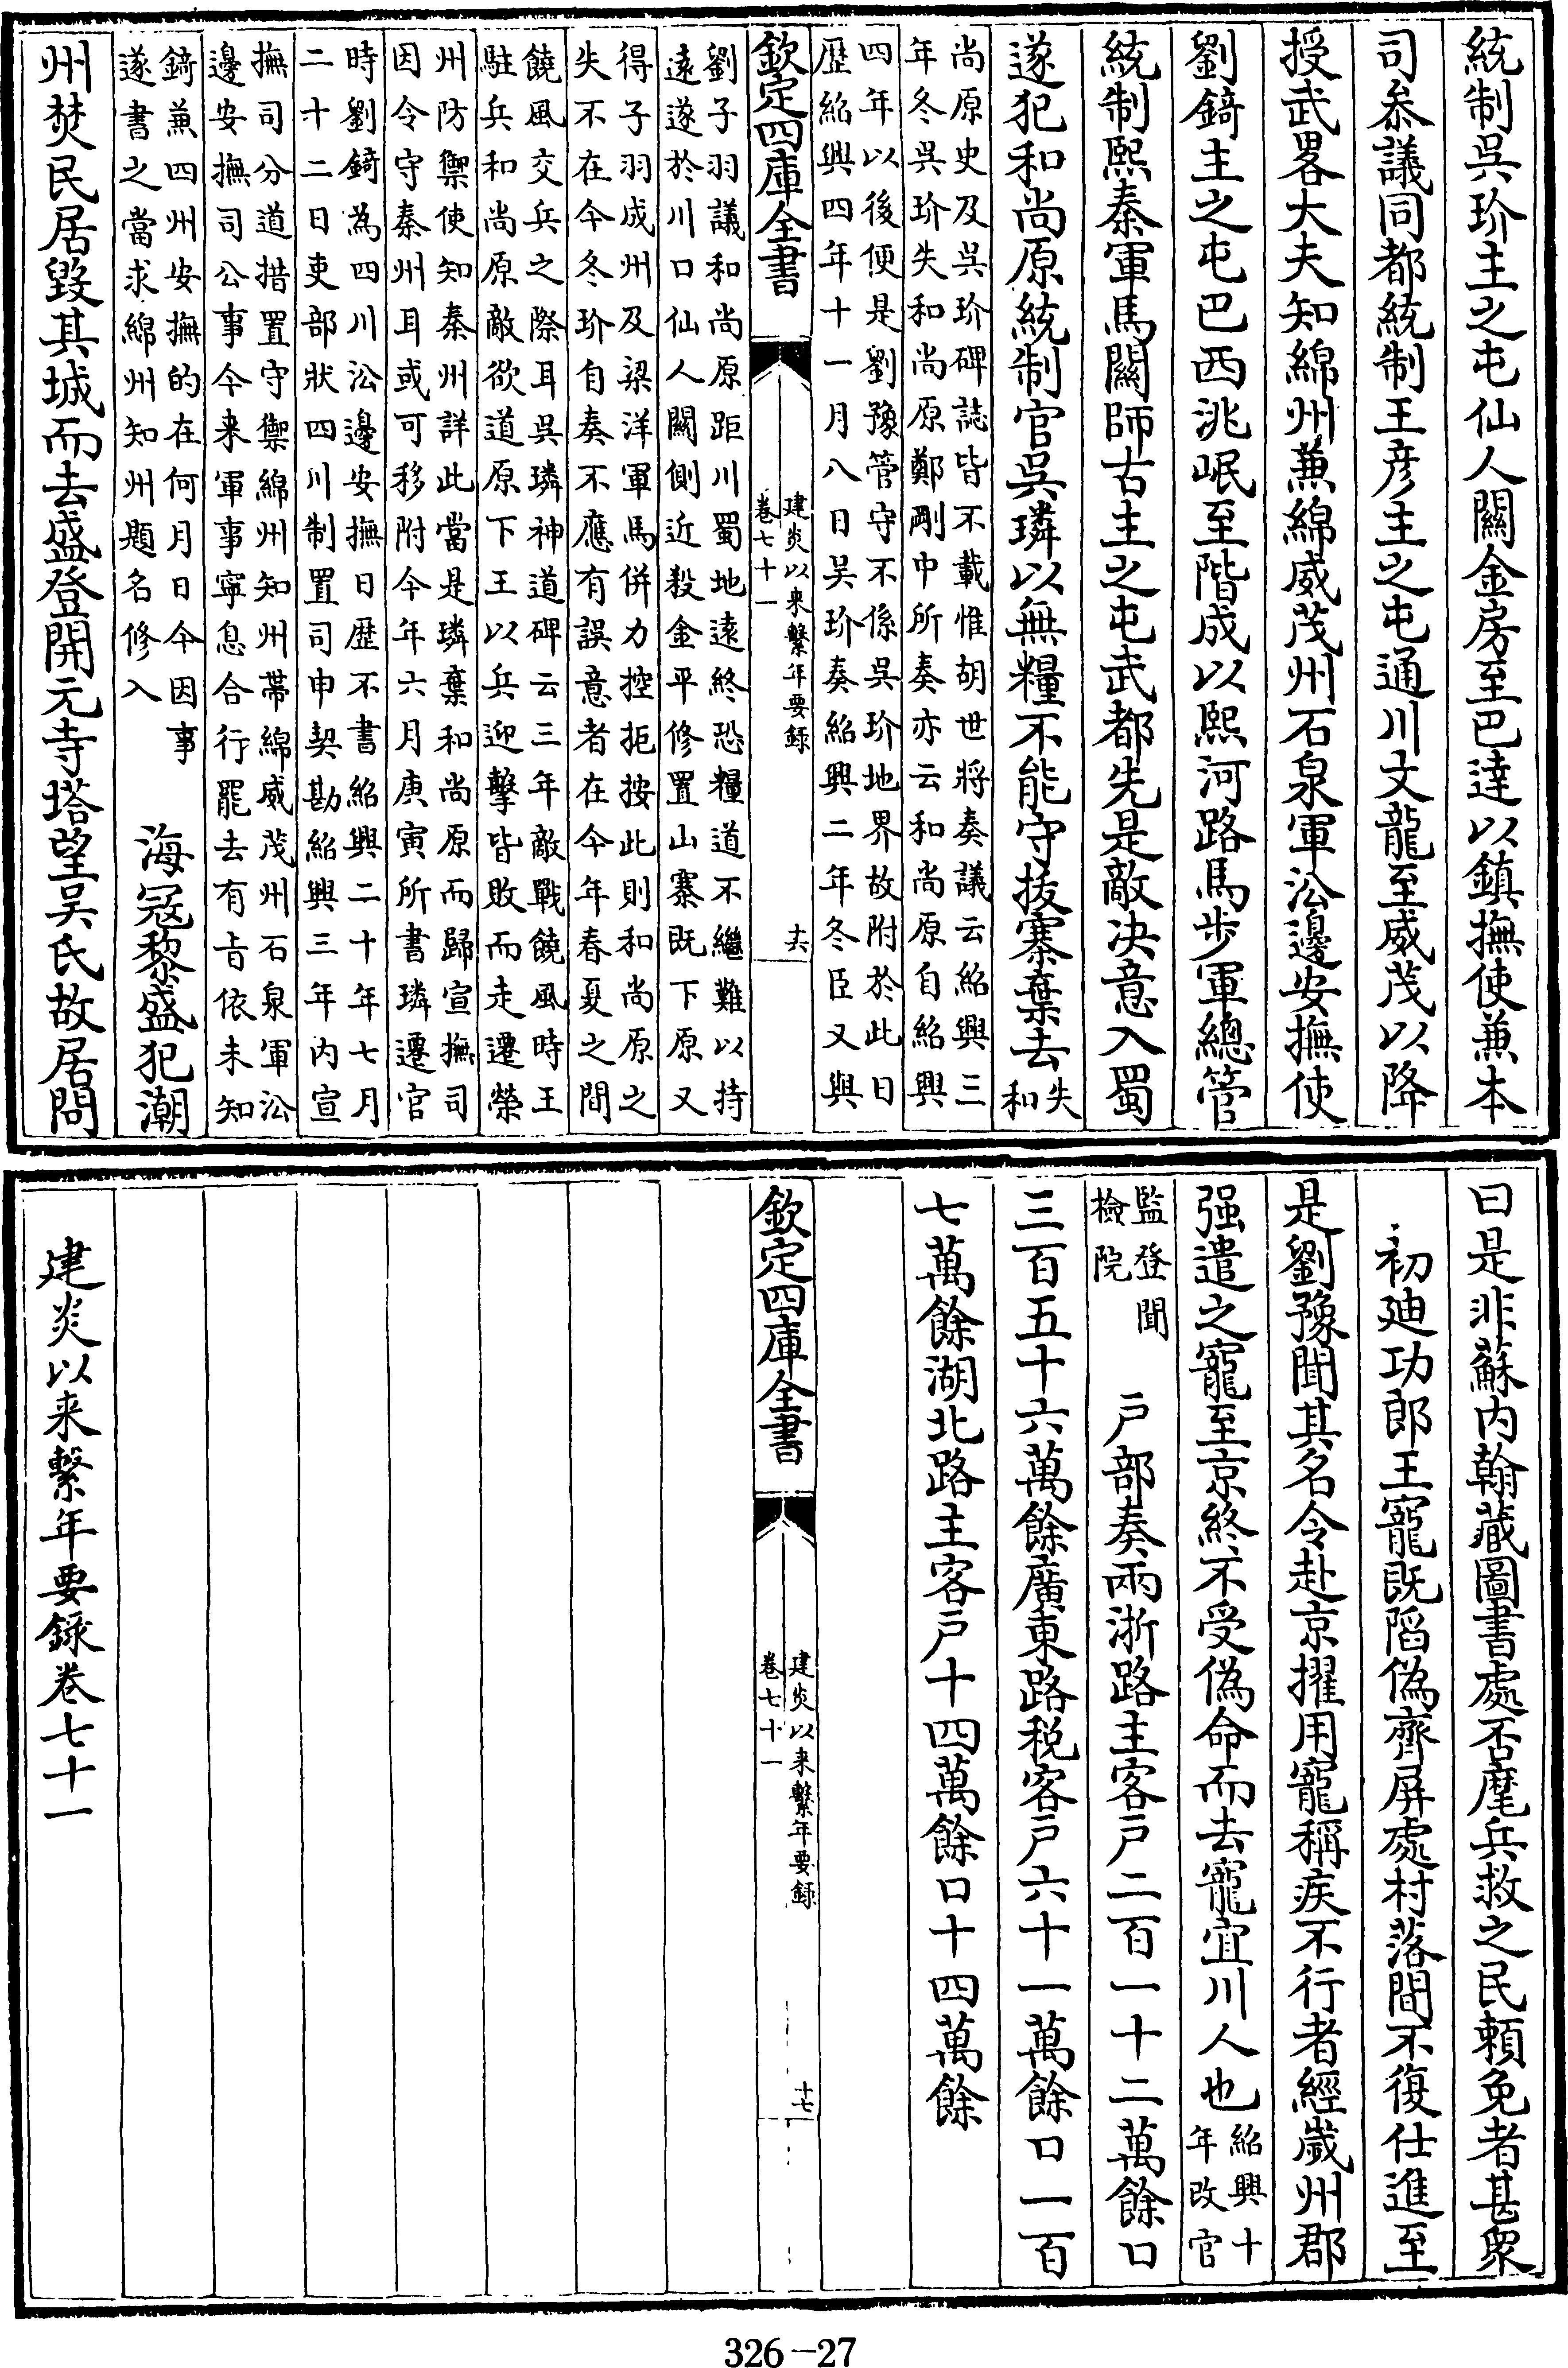 統制吳玠主之屯仙人關金房至巴達以鎮撫使兼本
司叅議同都統制王彦主之屯通川文龍至威茂以降
授武畧大夫知綿州兼綿威茂州石泉軍㳂邊安撫使
劉錡主之屯巴西洮岷至階成以熙河路馬步軍總管
統制熙秦軍馬關師古主之屯武都先是敵決意入蜀
遂犯和尚原統制官吳璘以無糧不能守抜寨棄去失
和
尚原史及吳玠碑誌皆不載惟胡世將奏議云紹興三
年冬吳玠失和尚原鄭剛中所奏亦云和尚原自紹興
四年以後便是劉豫管守不係吳玠地界故附於此日
歴紹興四年十一月八日吴玠奏紹興二年冬臣又與
欽定四庫全書
建炎以来繫年要録
卷七十一
十六
劉子羽議和尚原距川蜀地遠終恐糧道不繼難以持
遠遂於川口仙人關側近殺金平修置山寨既下原又
得子羽成州及梁洋軍馬併力控扼按此則和尚原之
失不在今冬玠自奏不應有誤意者在今年春夏之間
饒風交兵之際耳吳璘神道碑云三年敵戰饒風時王
駐兵和尚原敵欲道原下王以兵迎擊皆敗而走遷榮
州防禦使知秦州詳此當是璘棄和尚原而歸宣撫司
因令守秦州耳或可移附今年六月庚寅所書璘遷官
時劉錡為四川㳂邊安撫日歴不書紹興二十年七月
二十二日吏部狀四川制置司申契勘紹興三年内宣
撫司分道措置守禦綿州知州帯綿威茂州石泉軍㳂
邊安撫司公事今来軍事寧息合行罷去有㫖依未知
錡兼四州安撫的在何月日今因事
遂書之當求綿州知州題名修入
海冦黎盛犯潮
州焚民居毀其城而去盛登開元寺塔望吴氏故居問
曰是非蘇内翰藏圖書處否麾兵救之民頼免者甚衆
初廸功郎王寵既䧟偽齊屏處村落間不復仕進至
是劉豫聞其名令赴京擢用寵稱疾不行者經歲州郡
强遣之寵至京終不受偽命而去寵宜川人也紹興十
年改官
監登聞
檢院
戸部奏兩浙路主客戸二百一十二萬餘口
三百五十六萬餘廣東路税客戸六十一萬餘口一百
七萬餘湖北路主客戸十四萬餘口十四萬餘
欽定四庫全書
建炎以来繫年要録
卷七十一
十七
建炎以来繫年要録卷七十一
326-27